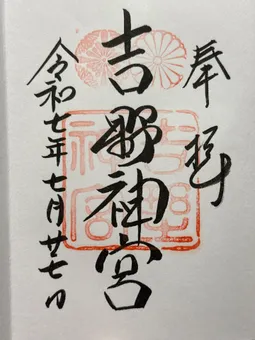 奉拝
吉野神宮
令和七年七月廿七日
吉野
神宮